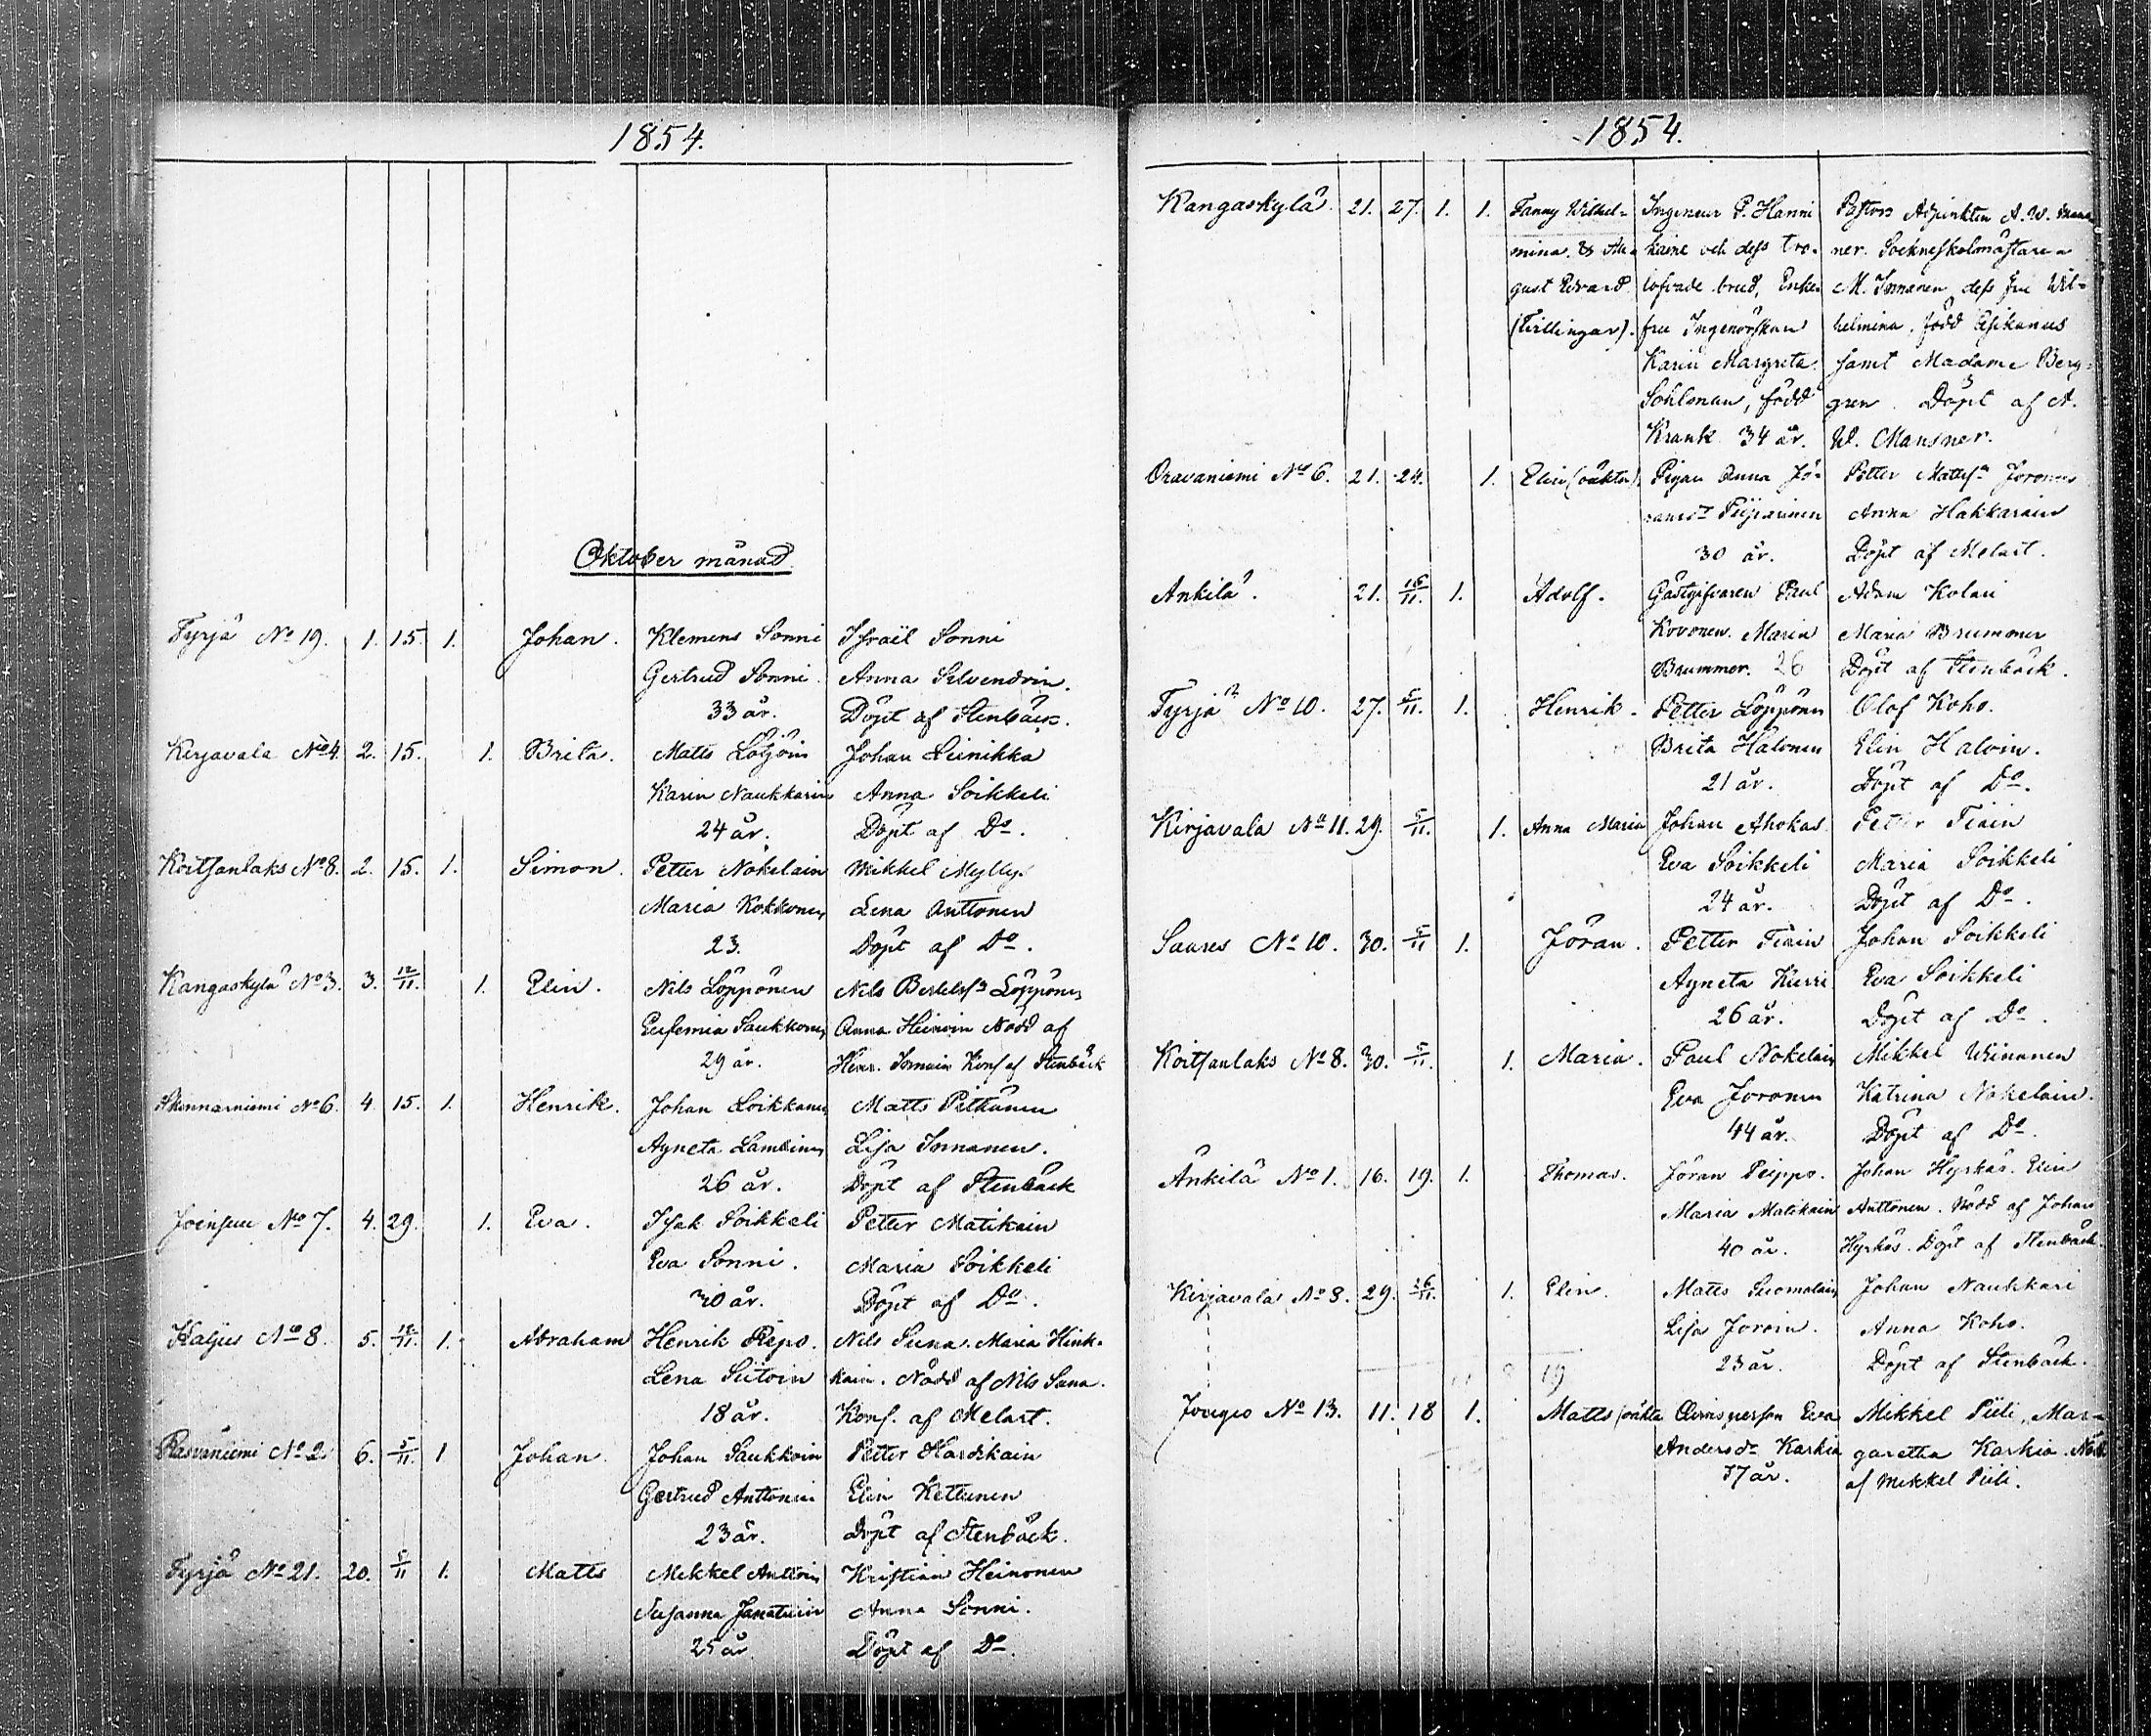 1854.
Oktober månad.
Tyrjä No 19. 1. 15. 1. Johan. Klemens Sonni Israël Sonni
Gertrud Sonni. Anna Silvendoin.
33 år. Döpt af Stenbäck.
Kirjavala No 4. 2. 15. 1. Brita. Matts Lötjöin Johan Leinikka
Karin Naukkarin Anna Soikkeli
24 år. Döpt af Do.
Koitsanlaks No 8. 2. 15. 1. Simon. Petter Nokelain Mikkel Mylly.
Maria Kokkonen Lena Anttonen
23. Döpt af Do.
Kangaskylä No 3. 3. 12/11. 1. Elin. Nils Löppönen Nils Bertelss Löppönen
Eufemia Saukkonen Anna Nödd af
29 år. Henr. Konf af Stenbäck
No 6. 4. 15. 1. Henrik. Johan Loikkanen Matts Pitkänen
Agneta Lamainen Lisa Innanen.
26 år. Döpt af Stenbäck
Joensuu No 7. 4. 29. 1. Eva. Isak Soikkeli Petter Matikain
Eva Sonni. Maria Soikkeli
30 år. Döpt af Do.
No 8. 5. 12/11. 1. Abraham Henrik Repo. Nils Suna. Maria Hink-
Lena Siitoin kain. Nödd af Nils Suna.
18 år. Konf. af Melart.
No 2. 6. 5/11. 1 Johan. Johan Saukkoin Petter Hardikain
Gertrud Anttonen Elin Kettunen
23 år. Döpt af Stenbäck.
Tyrjä No 21. 20. 5/11 1. Matts Mikkel Anttoin Kristian Heinonen
Susanna Janatuin Anna Sonni.
25 år Döpt af Do.
1854.
Kangaskylä. 21. 27. 1. 1. Fanny Wilhel- Ingenieur P. Hanni Pastors Adjunkten A. W.
mina & Au- och dess tro- ner. Sockneskolmästare
gust Edvard lofvade brud, Enke M. Innanen, dess fru Wil-
(Tvillingar). fru Ingenörskan helmina, född
Karin Margreta samt Madame Berg-
Sohlman, född gren. Döpt af A.
Krank 34 år. W. Mansner.
Oravaniemi No 6. 21. 24. 1. Elin (oäkta) Pigan Anna Jö- Petter Mattss Joronen
ransdr Piiparinen Anna Hakkarain
30 år. Döpt af Melart.
Ankilä. 21. 15/11. 1. Adolf. Gästgifvaren Paul Adam Kolari
Kovonen. Maria Maria Brummer
Brummer. 26 Döpt af Stenbäck.
Tyrjä No 10. 27. 5/11. 1. Henrik. Petter Löppönen Olof Koho.
Brita Halonen Elin Haloin.
21 år. Döpt af Do.
Kirjavala No 11. 29. 5/11. 1. Anna Maria Johan Ahokas. Petter Tiain
Eva Soikkeli Maria Soikkeli
24 år. Döpt af Do.
Saares No 10. 30. 5/11 1. Jöran. Petter Tiain Johan Soikkeli
Agneta Kurri Eva Soikkeli
26 år. Döpt af Do.
Koitsanlaks No 8. 30. 5/11. 1. Maria. Paul Nokelain Mikkel Weinanen
Eva Joronen Katrina Nokelain.
44 år. Döpt af Do.
Ankilä No 1. 16. 19. 1. Thomas. Jöran Peippo. Johan Hyrkäs. Elin
Maria Matikain Anttonen. Nödd af Johan
40 år. Hyrkäs. Döpt af Stenbäck.
Kirjavala No 8. 29. 26/11. 1. Elin. Matts Suomalain Johan Naukkari
Lisa Joroin. Anna Koho.
23 år. Döpt af Stenbäck.
19
No 13. 11. 18 1. Matts (oäkta Qvinsperson Eva Mikkel Piili, Mar-
Andersdr Karhia garetha Karhia. Nödd
37 år. af Mikkel Piili.